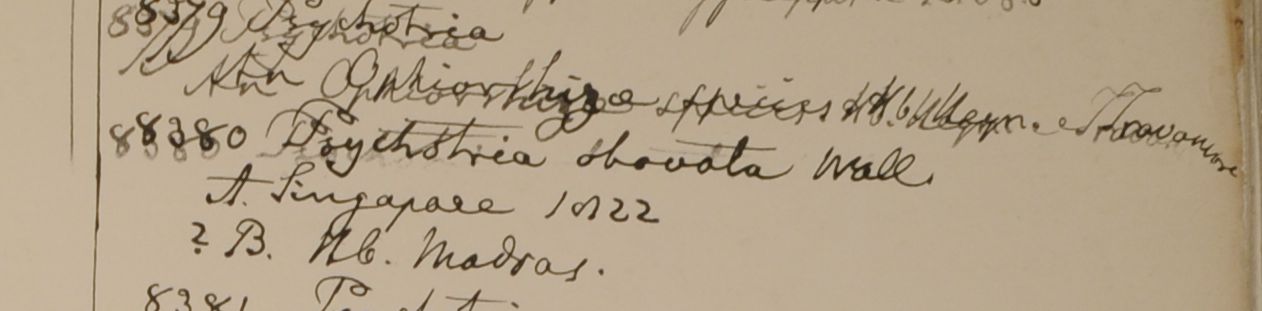 8379 Psychotria
An Ophiorrhizae species Hb. Heyne. Travancore
8380 Psychotria obovata Wall.
A. Singapore 1822
? B. Hb. Madras.
8381